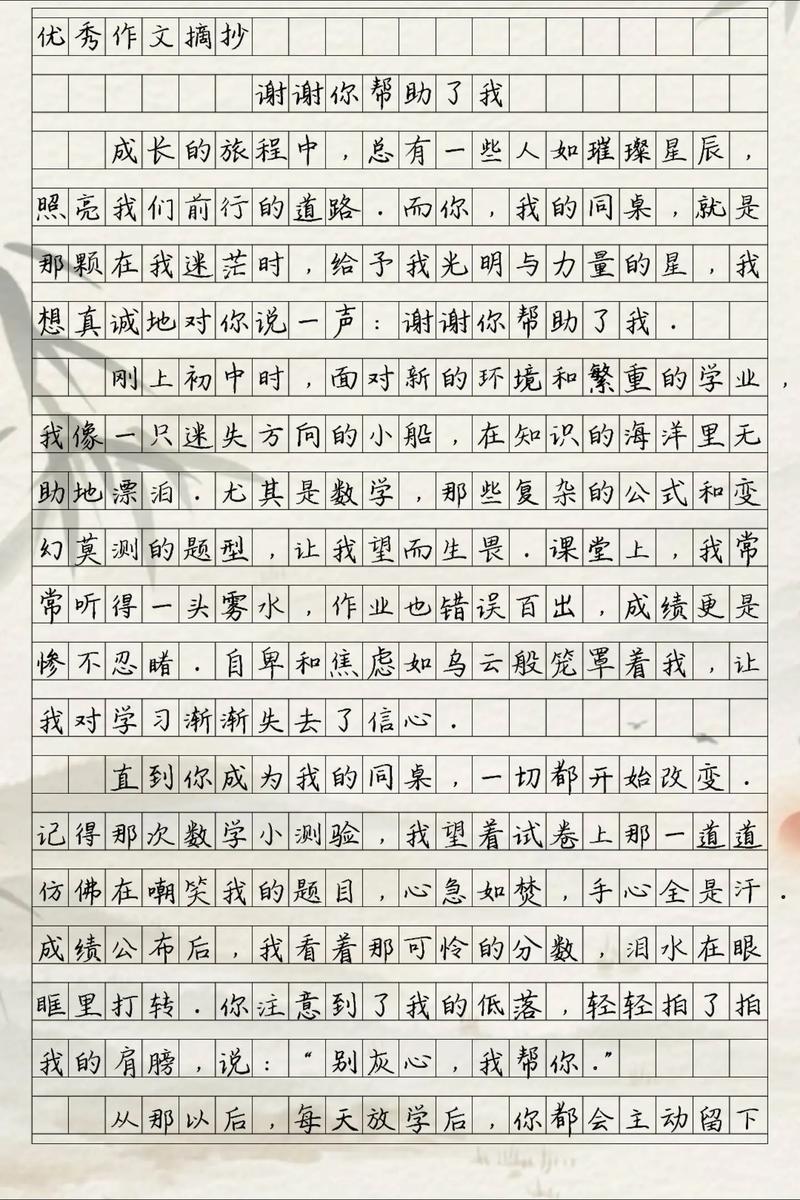 优秀作文摘抄
谢谢你帮助了我
成长的旅程中，总有一些人如璀璨星辰，
照亮我们前行的道路．而你，我的同桌，就是
那颗在我迷茫时，给予我光明与力量的星，我
想真诚地对你说一声：谢谢你帮助了我．
刚上初中时，面对新的环境和繁重的学业，
我像一只迷失方向的小船，在知识的海洋里无
助地漂泊．尤其是数学，那些复杂的公式和变
幻莫测的题型，让我望而生畏．课堂上，我常
常听得一头雾水，作业也错误百出，成绩更是
惨不忍睹．自卑和焦虑如乌云般笼罩着我，让
我对学习渐渐失去了信心．
直到你成为我的同桌，一切都开始改变．
记得那次数学小测验，我望着试卷上那一道道
仿佛在嘲笑我的题目，心急如焚，手心全是汗．
成绩公布后，我看着那可怜的分数，泪水在眼
眶里打转．你注意到了我的低落，轻轻拍了拍
我的肩膀，说：“别灰心，我帮你．”
从那以后，每天放学后，你都会主动留下